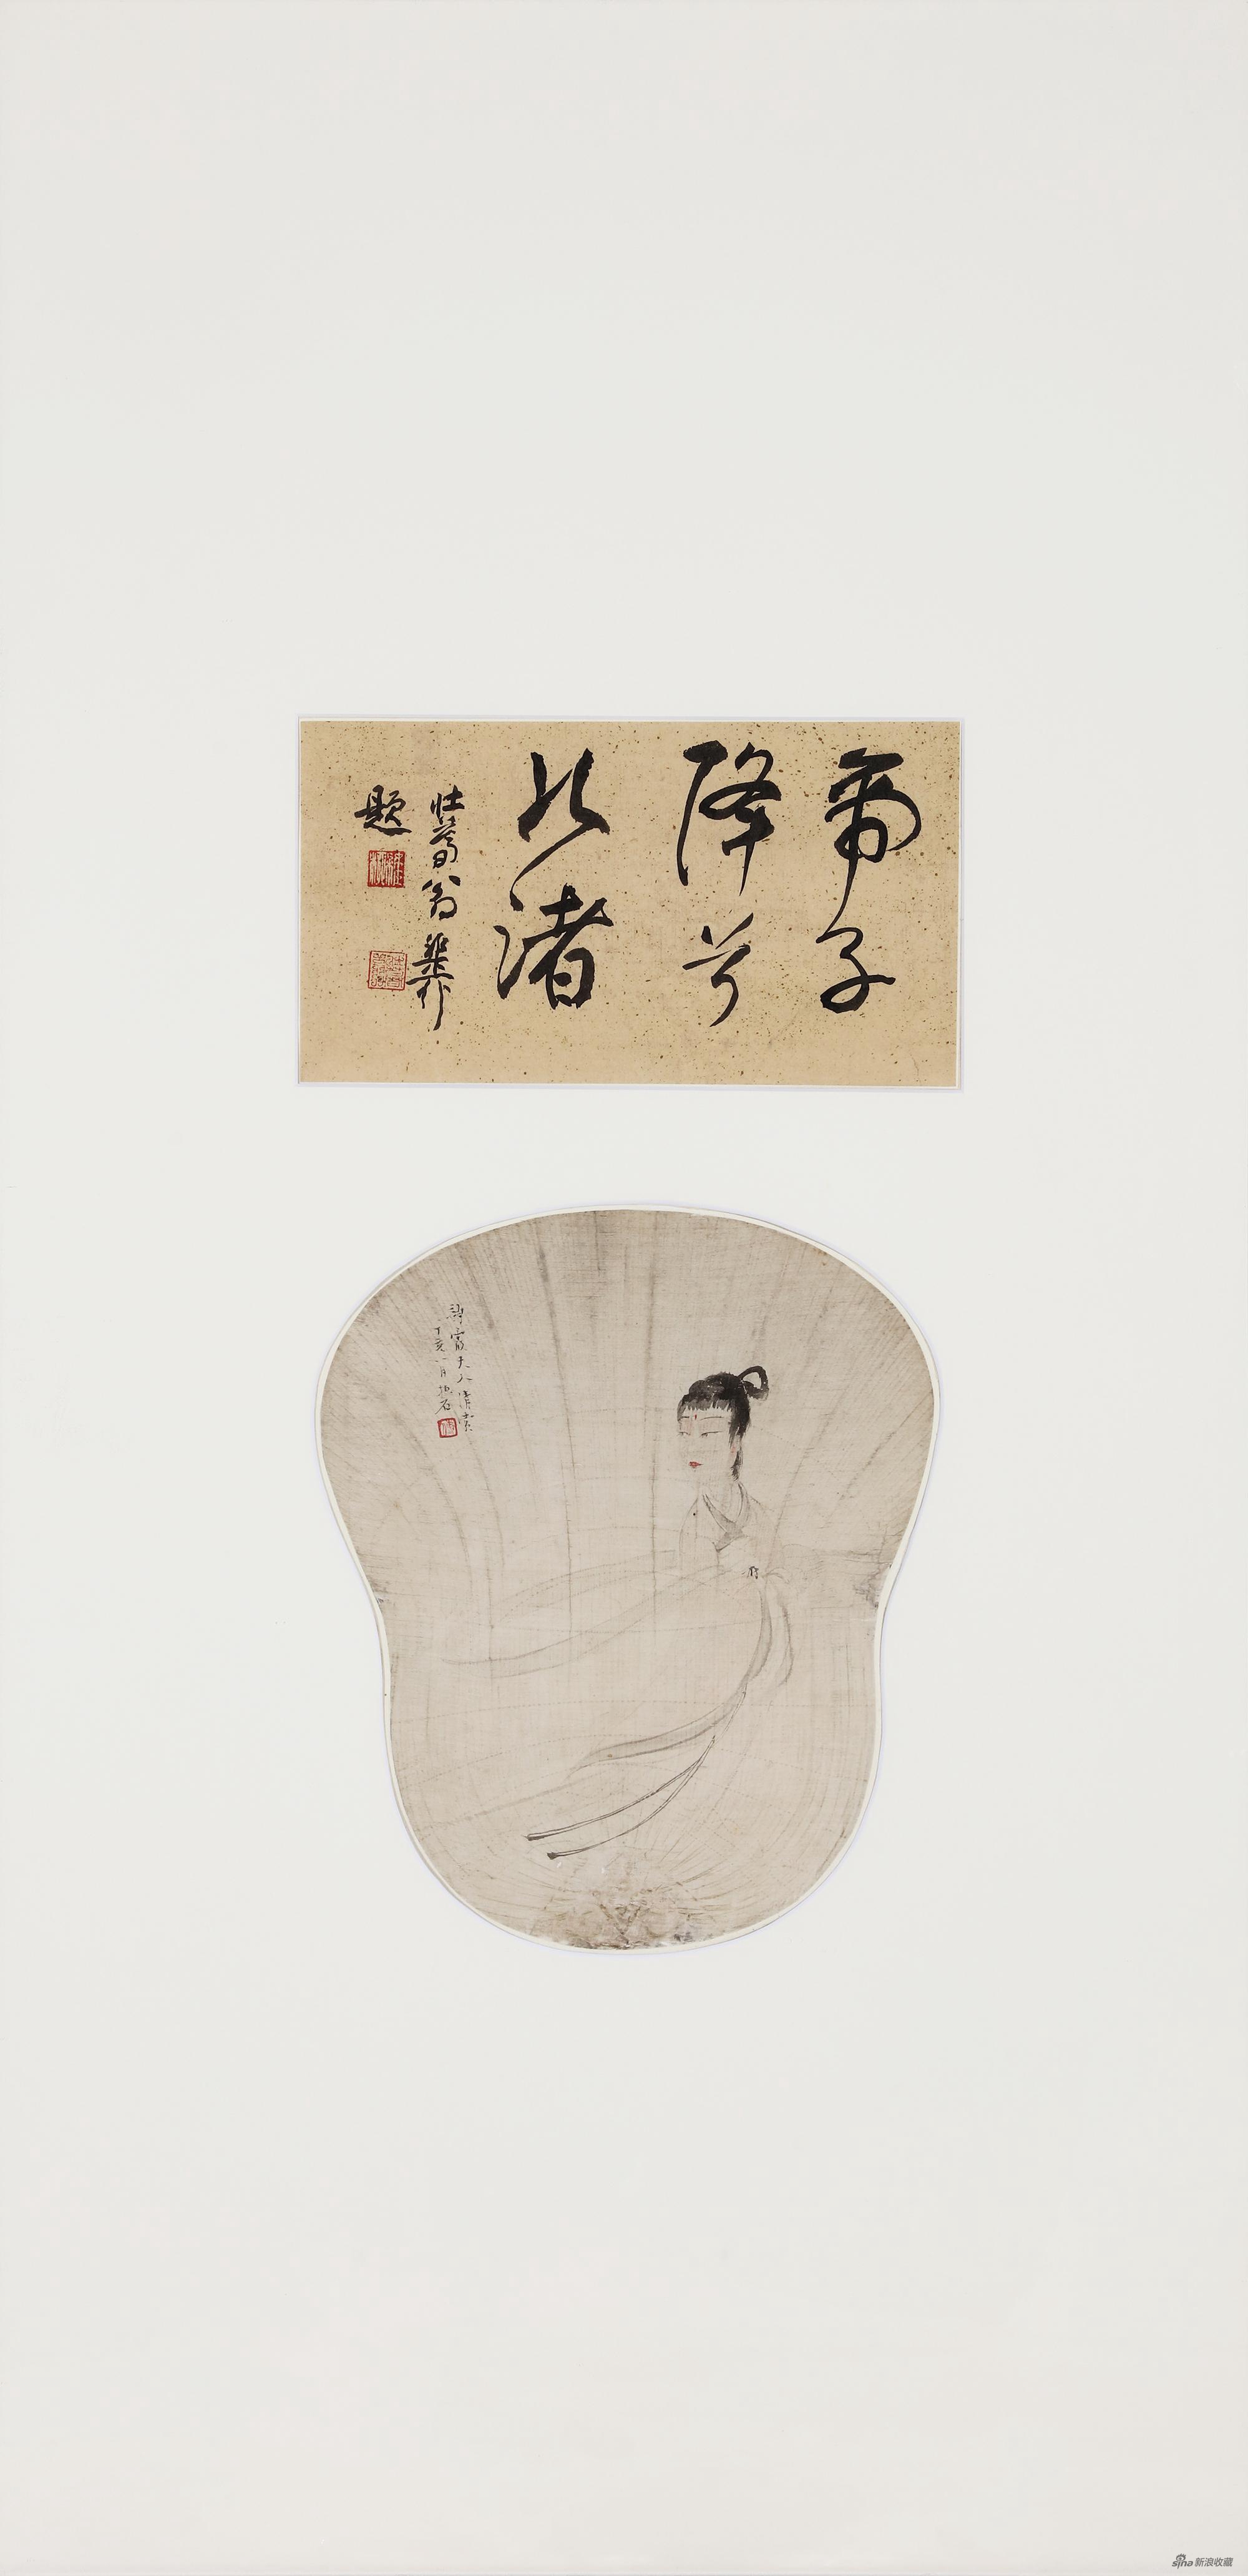 帝子
降兮
北渚
壮暮翁稚柳
题
静霞夫人清赏
丁亥一月抱石
sina 新浪收藏